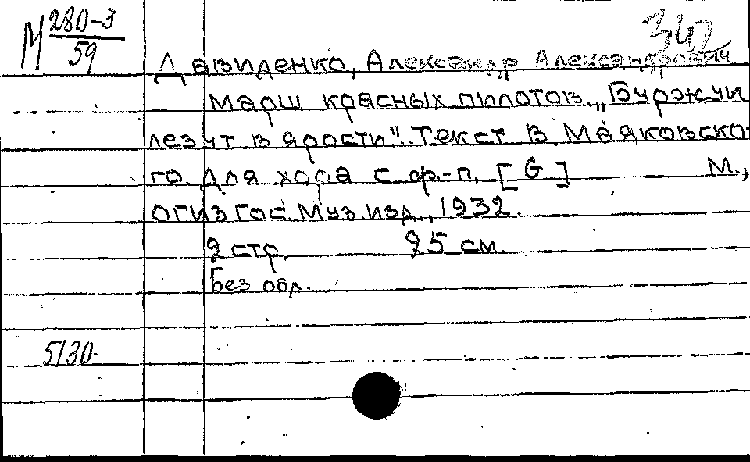 М 280-3
59
342
Давиденко, Александр Александрович
Марш красных пилотов. „Буржуи
лезут в ярости". Текст В Маяковско
го для хора с ф-п. [G] М.,
Огиз Гос. Муз. изд., 1932.
2 стр. 25 см.
Без обл.
5130-